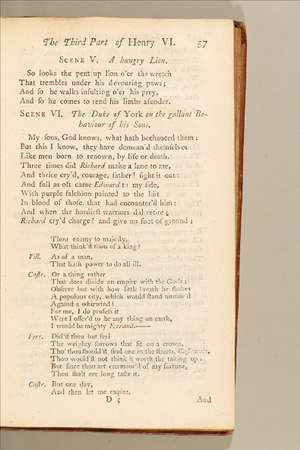 The Third Part of Henry VI. 57
SCENE V. A hungry Lion.
So looks the pent up lion o'er the wretch
That trembles under his devouring paws;
And so he walks insulting o'er his prey,
And so he comes to rend his limbs asunder.
SCENE VI. The Duke of York on the gallant Be-
haviour of his Sons.
My sons, God knows, what hath bechanced them:
But this I know, they have demean'd themselves
Like men born to renown, by life or death.
Three times did Richard make a lane to me,
And thrice cry'd, courage, father! fight it out:
And full as oft came Edward to my side,
With purple falchion painted to the hilt
In blood of those that had encounter'd him:
And when the hardiest warriors did retire,
Richard cry'd charge! and give no foot of ground;
Thou enemy to majesty,
What think'st thou of a king?
Vill. As of a man,
That hath power to do all ill.
Castr. Or a thing rather
That does divide an empire with the Gods;
Observe but with how little breath he shakes
A populous city, which would stand unmov'd
Against a whirlwind!
For me, I do profess it
Were I offer'd to be any thing on earth,
I would be mighty Ferrand.——
Ferr. Did'st thou but feel
The weighty sorrows that sit on a crown,
Tho' thou should'st find one in the streets, Castruccio,
Thou would'st not think it worth the taking up:
But since thou art enamour'd of my fortune,
Thou shalt ere long taste it.
Castr. But one day,
And then let me expire.
D 5 And